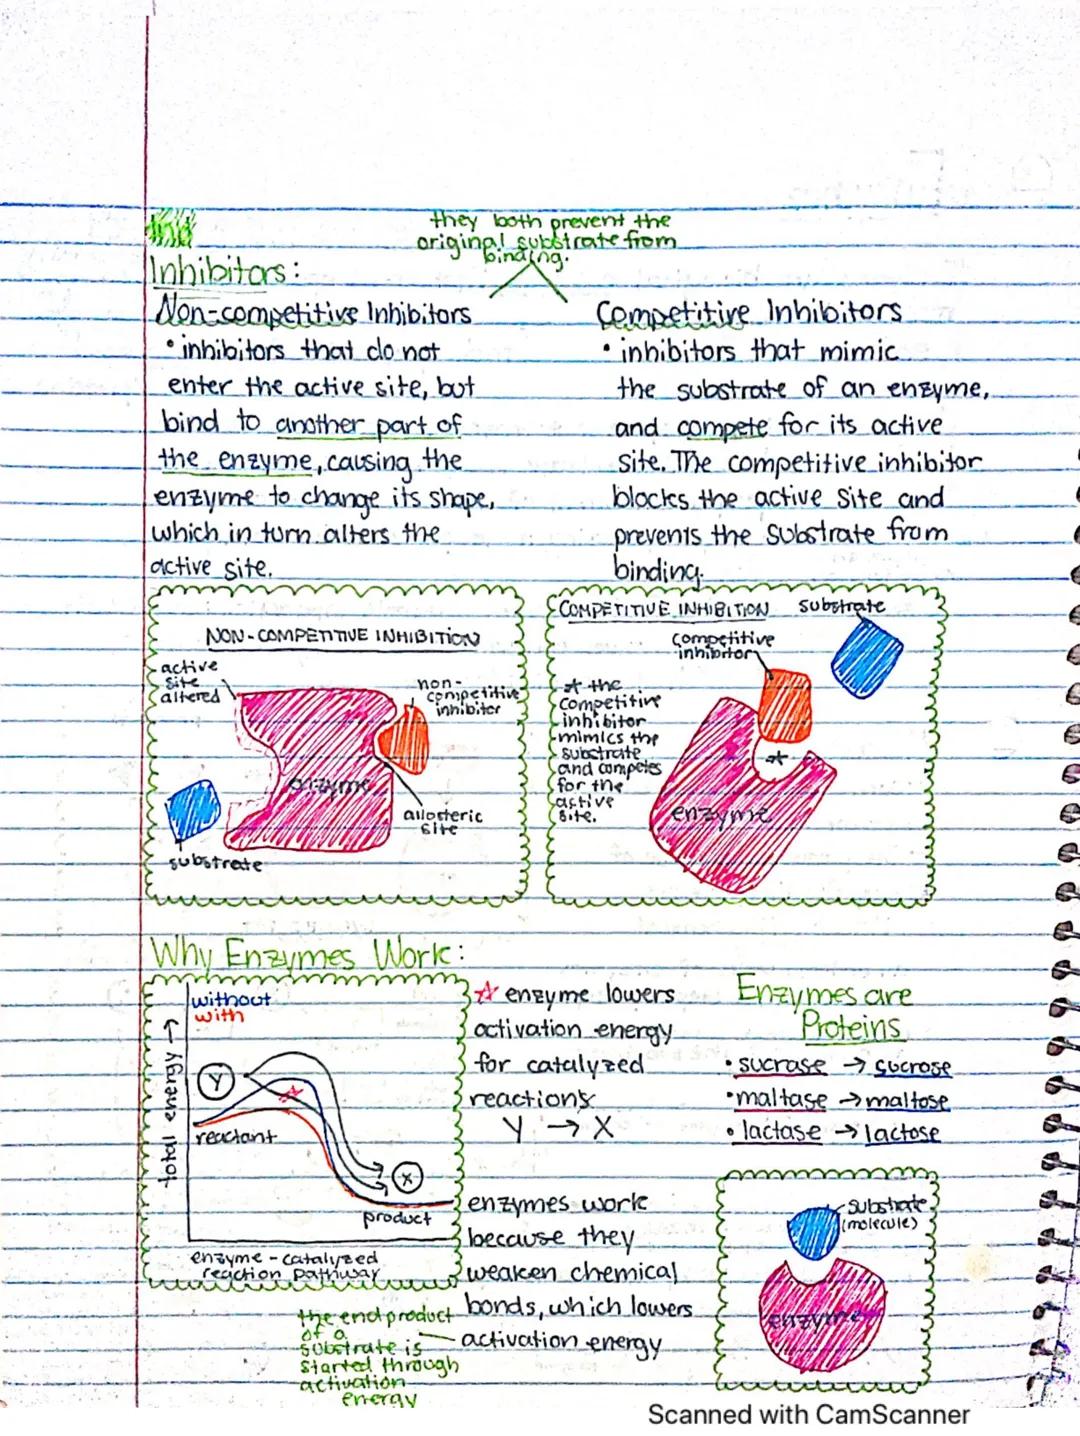 they both prevent the
original substrate from
binding.
Inhibitors:
Non-competitive Inhibitors
• inhibitors that do not
enter the active site, but
bind to another part of
the enzyme, causing the
enzyme to change its shape,
which in turn alters the
active site.
Competitive Inhibitors
• inhibitors that mimic
the substrate of an enzyme,
and compete for its active
site. The competitive inhibitor
blocks the active site and
prevents the substrate from
binding.
NON-COMPETITIVE INHIBITION
active
site
altered
non-
competitive
inhibitor
enzyme
allosteric
site
substrate
COMPETITIVE INHIBITION
substrate
competitive
inhibitor
* the
competitive
inhibitor
mimics the
substrate
and competes
for the
active
site.
*
enzyme
Why Enzymes Work:
without
with
total energy →
Y
reactant
X
product
enzyme-catalyzed
reaction pathway
☆ enzyme lowers
activation energy
for catalyzed
reactions
Y → X
enzymes work
because they
weaken chemical
bonds, which lowers
activation energy
the end product
of a
substrate is
started through
activation
energy
Enzymes are
Proteins
• sucrase → sucrose
• maltase → maltose
• lactase → lactose
substrate
(molecule)
enzyme
Scanned with CamScanner